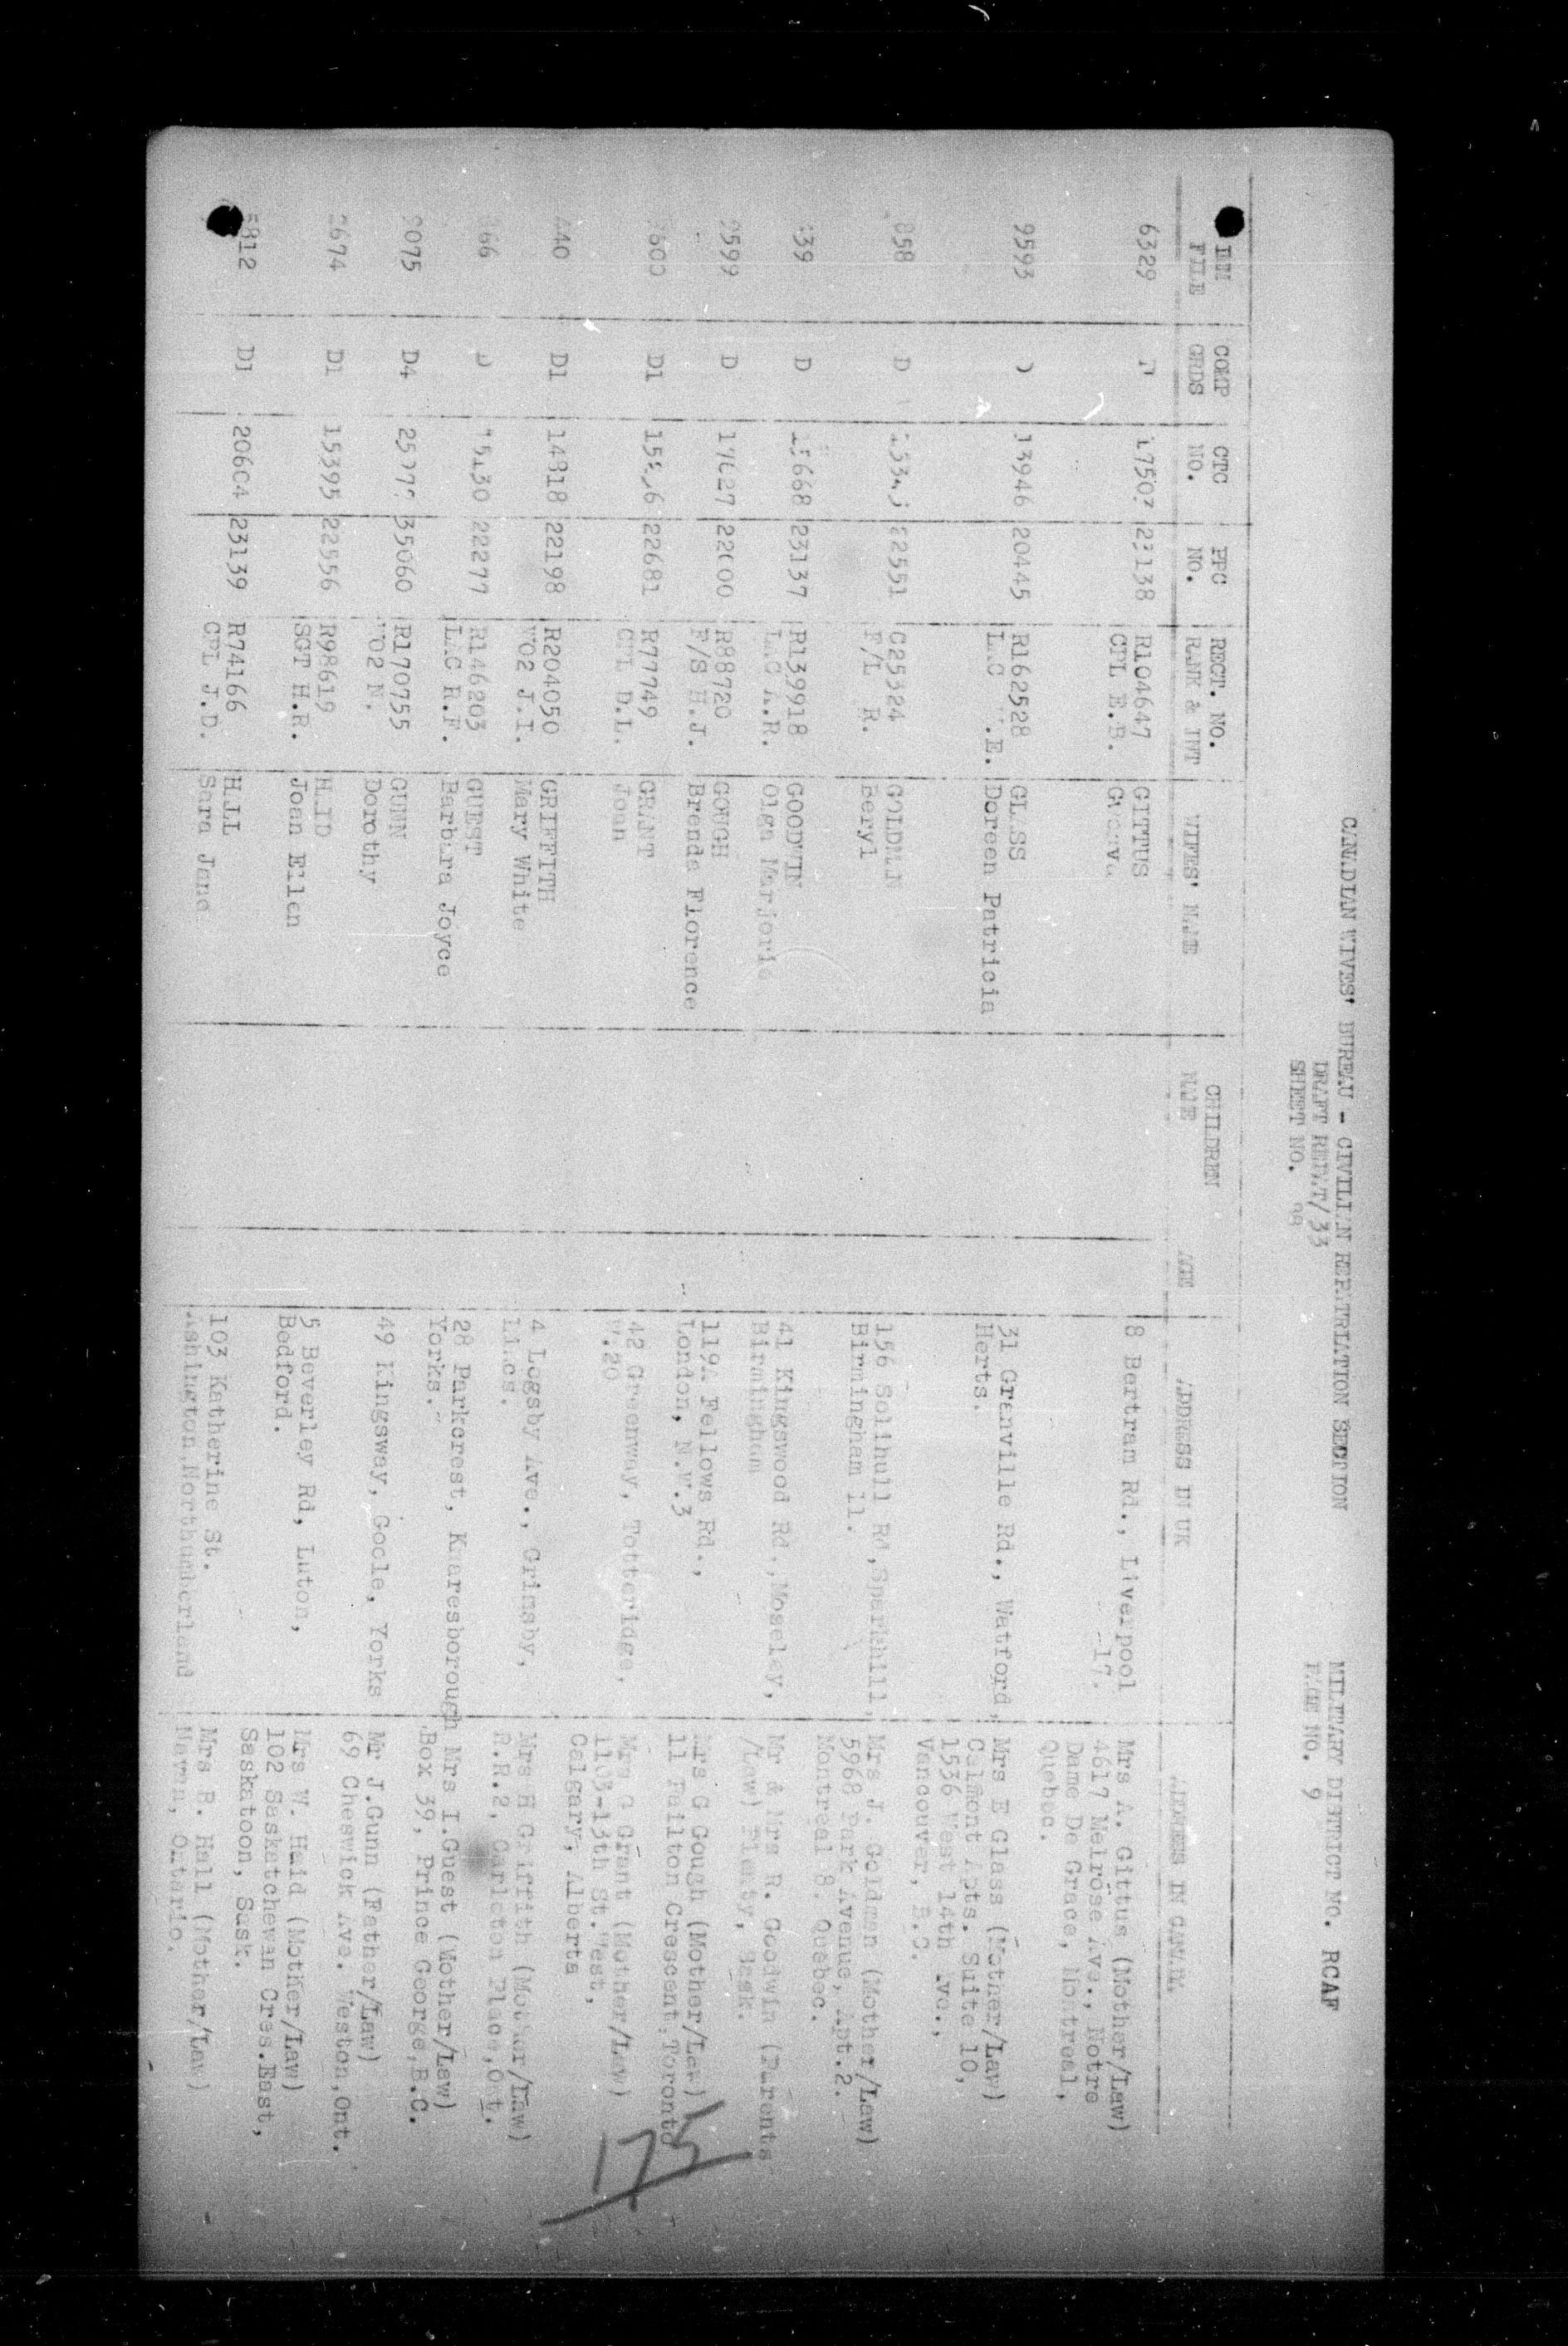 CANADIAN WIVES' BUREAU - CIVILIAN REPATRIATION SECTION
DRAFT REPAT/33
SHEET NO.
MILITARY DISTRICT NO. RCAF
PAGE NO. 9
FILE COMP GRDS CTC NO. PPC NO. REGT. NO. RANK & INT WIFES' NAME CHILDREN NAME AGE ADDRESS IN UK ADDRESS IN CAN.
6329 23138 R104647 GITTUS 8 Bertram Rd., Liverpool Mrs A. Gittus (Mother/Law)
CPL E.B. 17. 4617 Melrose Ave., Notre
Dame De Grace, Montreal,
Quebec.
9593 13946 20445 R162528 GLASS 31 Granville Rd., Watford, Mrs E Glass (Mother/Law)
LAC .E. Doreen Patricia Herts. Calmont Apts. Suite 10,
1536 West 14th Ave.,
Vancouver, B.C.
858 D 22551 C25324 GOLDMAN 156 Solihull Rd, Sparkhill, Mrs J. Goldman (Mother/Law)
F/L R. Beryl Birmingham 11. 5968 Park Avenue, Apt.2.
Montreal 8. Quebec.
439 D 15668 23137 R139918 GOODWIN 41 Kingswood Rd., Moseley, Mr & Mrs R. Goodwin (Parents
LAC A.R. Olga Marjorie Birmingham /Law) Plenty, Sask.
9599 D 22000 R88720 GOUGH 119A Fellows Rd., Mrs G Gough (Mother/Law)
F/S H.J. Brenda Florence London, N.W.3 11 Failton Crescent, Toronto
D1 22681 R77749 GRANT 42 Greenway, Totteridge, Mrs G Grant (Mother/Law)
CPL D.L. Joan N.20 1103-13th St. West,
Calgary, Alberta
440 D1 14818 22198 R204050 GRIFFITH 4 Logsby Ave., Grimsby, Mrs H Griffith (Mother/Law)
WO2 J.I. Mary White Lincs. R.R.2, Carleton Place, Ont.
D 22277 R146203 GUEST 28 Parkcrest, Knaresborough Mrs I.Guest (Mother/Law)
LAC R.F. Barbara Joyce Yorks. Box 39, Prince George, B.C.
2075 D4 35060 R170755 GUNN 49 Kingsway, Goole, Yorks Mr J.Gunn (Father/Law)
WO2 N. Dorothy 69 Cheswick Ave. Weston, Ont.
2674 D1 15395 22556 R98619 HAID 5 Beverley Rd, Luton, Mrs W. Haid (Mother/Law)
SGT H.R. Joan Ellen Bedford. 102 Saskatchewan Cres. East,
Saskatoon, Sask.
5812 D1 20604 23139 R74166 HALL 103 Katherine St. Mrs B. Hall (Mother/Law)
CPL J.D. Sara Jane Ashington, Northumberland Navan, Ontario.
175